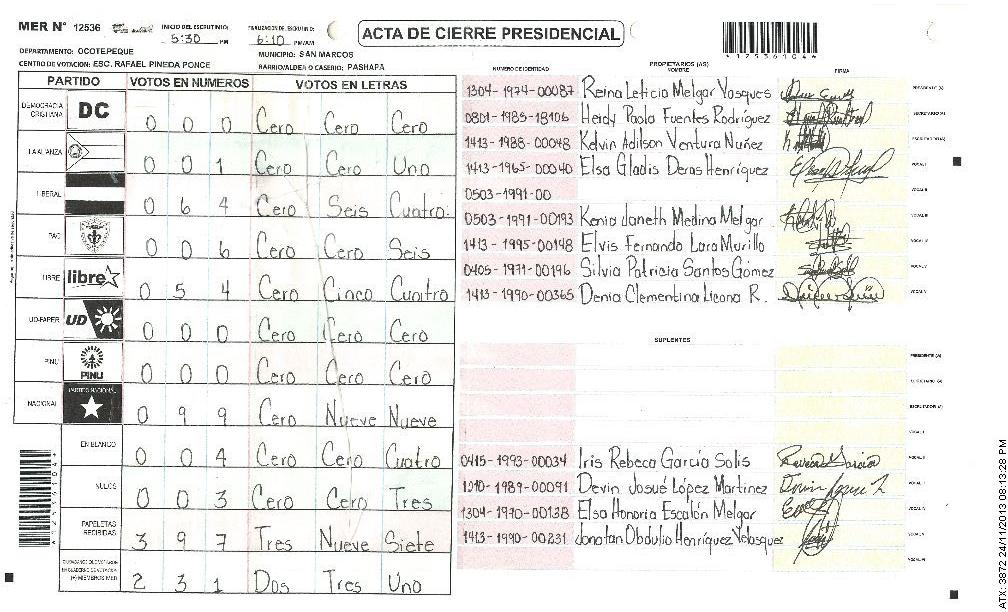 MER N° 12536
INICIO DEL ESCRUTINIO: 5:30 PM
FINALIZACION DE ESCRUTINIO: 6:10 PM/AM
ACTA DE CIERRE PRESIDENCIAL
*12536104*
DEPARTAMENTO: OCOTEPEQUE
MUNICIPIO: SAN MARCOS
CENTRO DE VOTACION: ESC. RAFAEL PINEDA PONCE
BARRIO/ALDEA O CASERIO: PASHAPA
PARTIDO VOTOS EN NUMEROS VOTOS EN LETRAS
DEMOCRACIA CRISTIANA DC 0 0 0 Cero Cero Cero
LA ALIANZA 0 0 1 Cero Cero Uno
LIBERAL 0 6 4 Cero Seis Cuatro.
PAC 0 0 6 Cero Cero Seis
LIBRE libre 0 5 4 Cero Cinco Cuatro
UD-FAPER UD 0 0 0 Cero Cero Cero
PINU PINU 0 0 0 Cero Cero Cero
NACIONAL PARTIDO NACIONAL 0 9 9 Cero Nueve Nueve
EN BLANCO 0 0 4 Cero Cero Cuatro
NULOS 0 0 3 Cero Cero Tres
PAPELETAS RECIBIDAS 3 9 7 Tres Nueve Siete
(+) MIEMBROS MER 2 3 1 Dos Tres Uno
*12536104*
NUMERO DE IDENTIDAD PROPIETARIOS (AS) NOMBRE FIRMA
1304-1974-00087 Reina Leticia Melgar Vasques PRESIDENTE (A)
0801-1985-18106 Heidy Paola Fuentes Rodríguez SECRETARIO (A)
1413-1988-00048 Kelvin Adilson Ventura Nuñez ESCRUTADOR (A)
1413-1965-00040 Elsa Gladis Deras Henríquez VOCAL I
0503-1991-00 VOCAL II
0503-1991-00193 Kenia Janeth Medina Melgar VOCAL III
1413-1995-00148 Elvis Fernando Lara Murillo VOCAL IV
0405-1971-00196 Silvia Patricia Santos Gómez VOCAL V
1413-1990-00365 Denia Clementina Licona R. VOCAL VI
SUPLENTES
PRESIDENTE (A)
SECRETARIO (A)
ESCRUTADOR (A)
VOCAL I
0415-1993-00034 Iris Rebeca García Solis VOCAL II
1010-1989-00091 Devin Josué López Martinez VOCAL III
1304-1970-00138 Elsa Honoria Escalón Melgar VOCAL IV
1413-1990-00231 Jonatan Obdulio Henríquez Velasquez VOCAL V
VOCAL VI
ATX: 3872 24/11/2013 08:13:28 PM